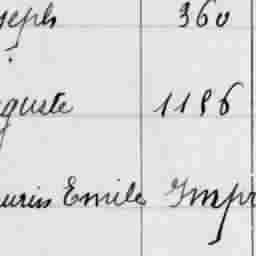 seph 360
guste 1196
urin Emile Impr